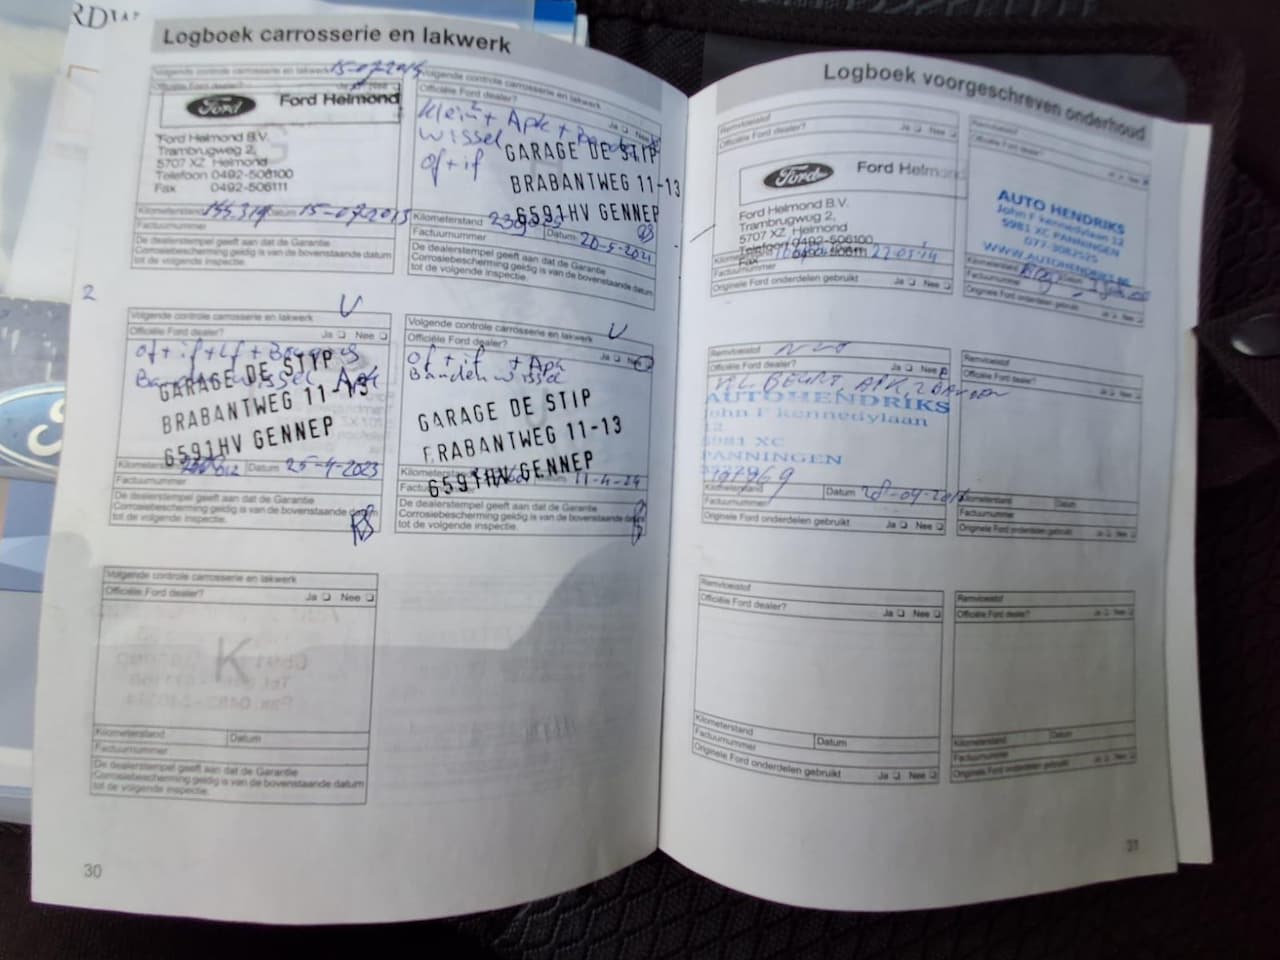 Logboek carrosserie en lakwerk
Volgende controle carrosserie en lakwerk 15-07-2015
Officiële Ford dealer? Ja Nee
Ford Ford Helmond
Ford Helmond B.V.
Trambrugweg 2,
5707 XZ Helmond
Telefoon 0492-506100
Fax 0492-506111
Kilometerstand Datum 15-07-2013
Factuurnummer
De dealerstempel geeft aan dat de Garantie
Corrosiebescherming geldig is van de bovenstaande datum
tot de volgende inspectie.
Volgende controle carrosserie en lakwerk
Officiële Ford dealer?
Ja Nee
klein + Apk +
wissel
of + if
GARAGE DE STIP
BRABANTWEG 11-13
6591HV GENNEP
Kilometerstand
Factuurnummer Datum: 20-5-2021
De dealerstempel geeft aan dat de Garantie
Corrosiebescherming geldig is van de bovenstaande datum
tot de volgende inspectie.
2
Volgende controle carrosserie en lakwerk
Officiële Ford dealer? Ja Nee
of + if + Lf +
wissel Apk
GARAGE DE STIP
BRABANTWEG 11-13
6591HV GENNEP
Datum 25-4-2023
Factuurnummer
De dealerstempel geeft aan dat de Garantie
Corrosiebescherming geldig is van de bovenstaande datum
tot de volgende inspectie.
Volgende controle carrosserie en lakwerk
Officiële Ford dealer?
Ja Nee
of + if + Apk
Banden wissel
GARAGE DE STIP
BRABANTWEG 11-13
6591HV GENNEP
11-4-24
De dealerstempel geeft aan dat de Garantie
Corrosiebescherming geldig is van de bovenstaande datum
tot de volgende inspectie.
Volgende controle carrosserie en lakwerk
Officiële Ford dealer? Ja Nee
K
Kilometerstand Datum
Factuurnummer
De dealerstempel geeft aan dat de Garantie
Corrosiebescherming geldig is van de bovenstaande datum
tot de volgende inspectie.
30
Logboek voorgeschreven onderhoud
Remvloeistof
Officiële Ford dealer? Ja Nee
Ford Ford Helmond
Ford Helmond B.V.
Trambrugweg 2,
5707 XZ Helmond
Telefoon 0492-506100
Fax 0492-506111
Factuurnummer
Originele Ford onderdelen gebruikt Ja Nee
Remvloeistof
Officiële Ford dealer?
AUTO HENDRIKS
John F kennedylaan 12
5981 XC PANNINGEN
WWW.AUTOHENDRIKS.NL
Kilometerstand Datum
Factuurnummer
Originele Ford onderdelen gebruikt
Remvloeistof
Officiële Ford dealer? Ja Nee
BEURT, APK, 2 BANDEN
AUTOHENDRIKS
John F kennedylaan
12
5981 XC
PANNINGEN
Kilometerstand Datum
Factuurnummer
Originele Ford onderdelen gebruikt Ja Nee
Remvloeistof
Officiële Ford dealer?
Kilometerstand Datum
Factuurnummer
Originele Ford onderdelen gebruikt
Remvloeistof
Officiële Ford dealer? Ja Nee
Kilometerstand
Factuurnummer Datum
Originele Ford onderdelen gebruikt Ja Nee
Remvloeistof
Officiële Ford dealer?
Kilometerstand Datum
Factuurnummer
Originele Ford onderdelen gebruikt
31